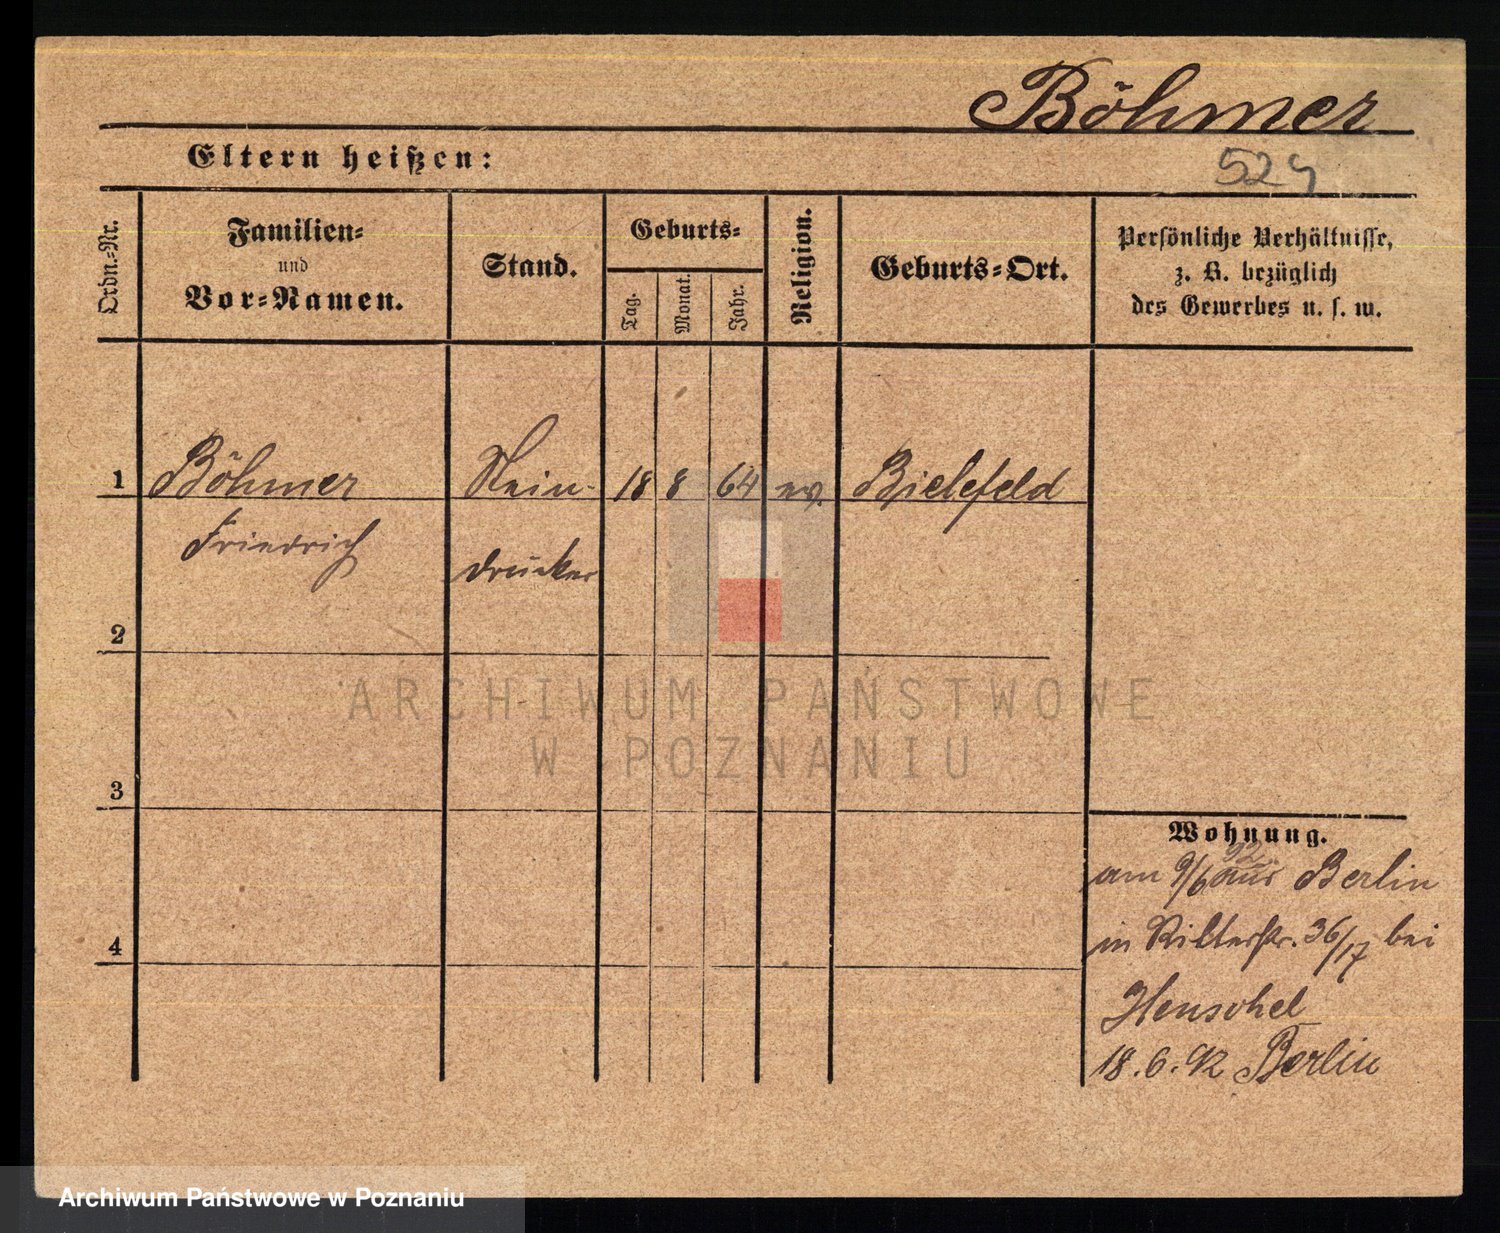 Böhmer
Eltern heißen:
524
Ordn.-Nr.
Familien-
und
Vor-Namen.
Stand.
Geburts-
Tag.
Monat.
Jahr.
Religion.
Geburts-Ort.
Persönliche Verhältnisse,
z. B. bezüglich
des Gewerbes u. s. w.
1 Böhmer Stein- 18 8 64 ev. Bielefeld
Friedrich drucker
2
3
4
Wohnung.
92
am 9/6 aus Berlin
in Ritterstr. 36/17 bei
Henschel
18.6.92 Berlin
ARCHIWUM PAŃSTWOWE
W POZNANIU
Archiwum Państwowe w Poznaniu